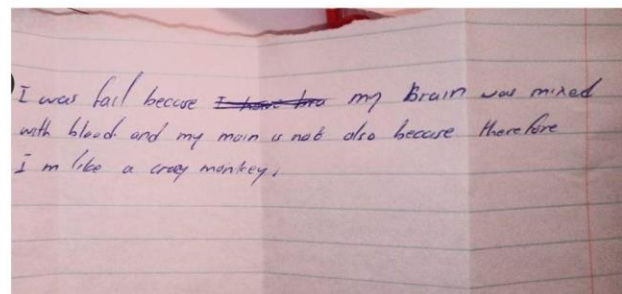 I was fail becuse I have bra my Brain was mixed
with blood. and my main is not also becuse therefore
I m like a crazy monkey.